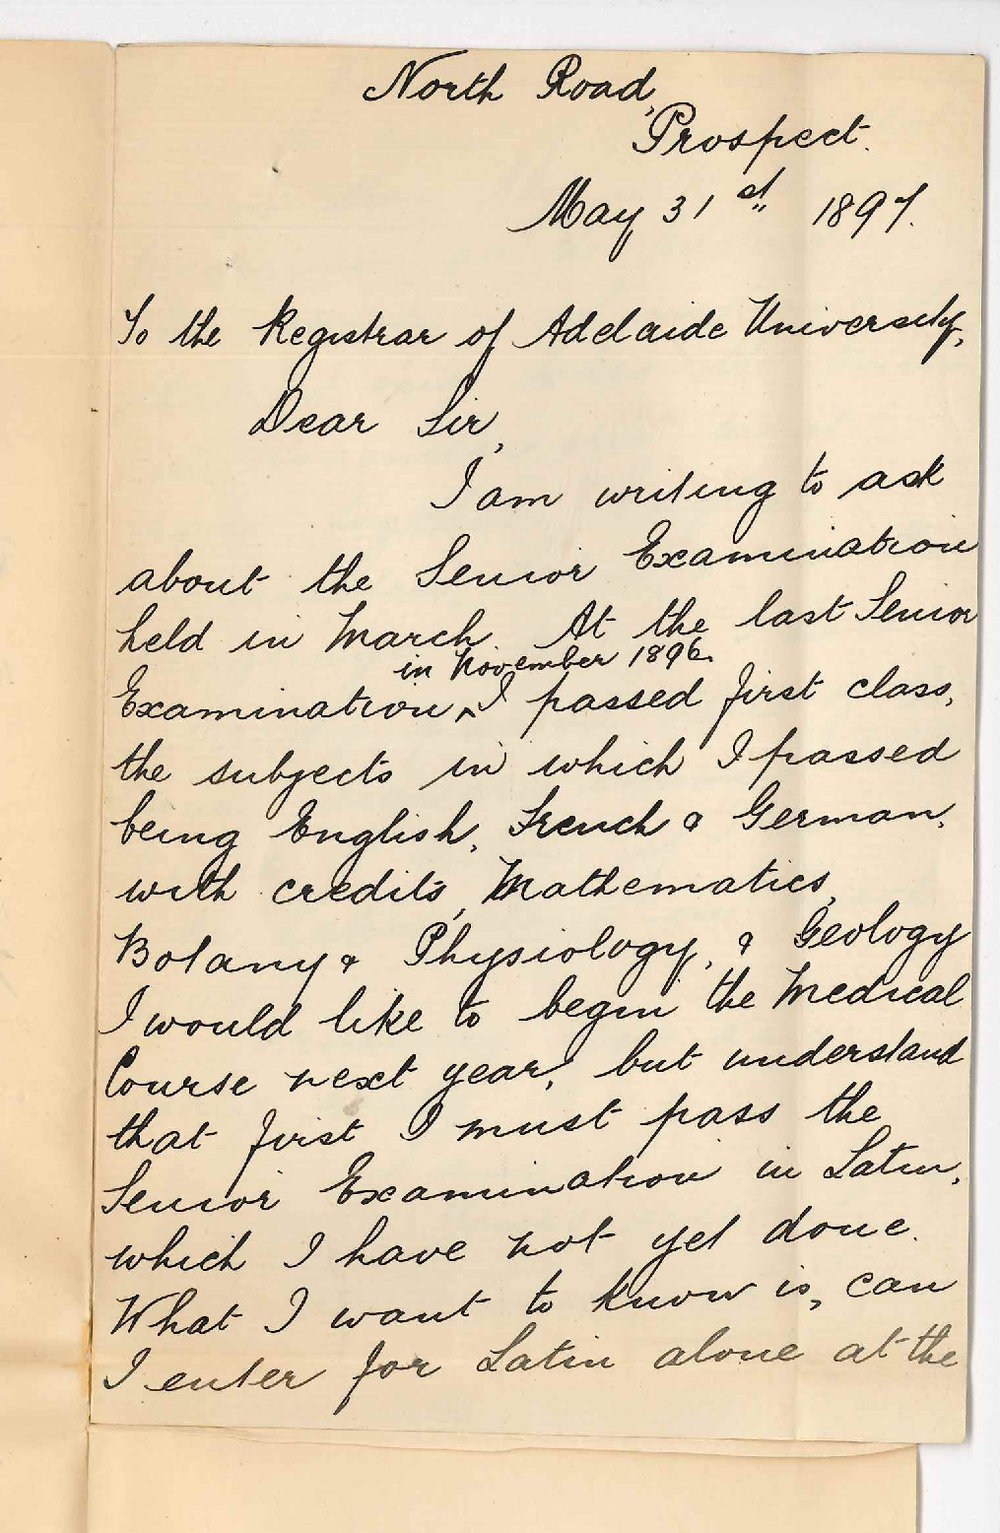 North Road,
Prospect.
May 31st 1897.
To the Registrar of Adelaide University,
Dear Sir,
I am writing to ask
about the Senior Examination
held in March. At the last Senior
in November 1896.
Examination ^ I passed first class,
the subjects in which I passed
being English, French & German,
with credits, Mathematics,
Botany & Physiology, & Geology
I would like to begin the Medical
Course next year, but understand
that first I must pass the
Senior Examination in Latin,
which I have not yet done.
What I want to know is, can
I enter for Latin alone at the